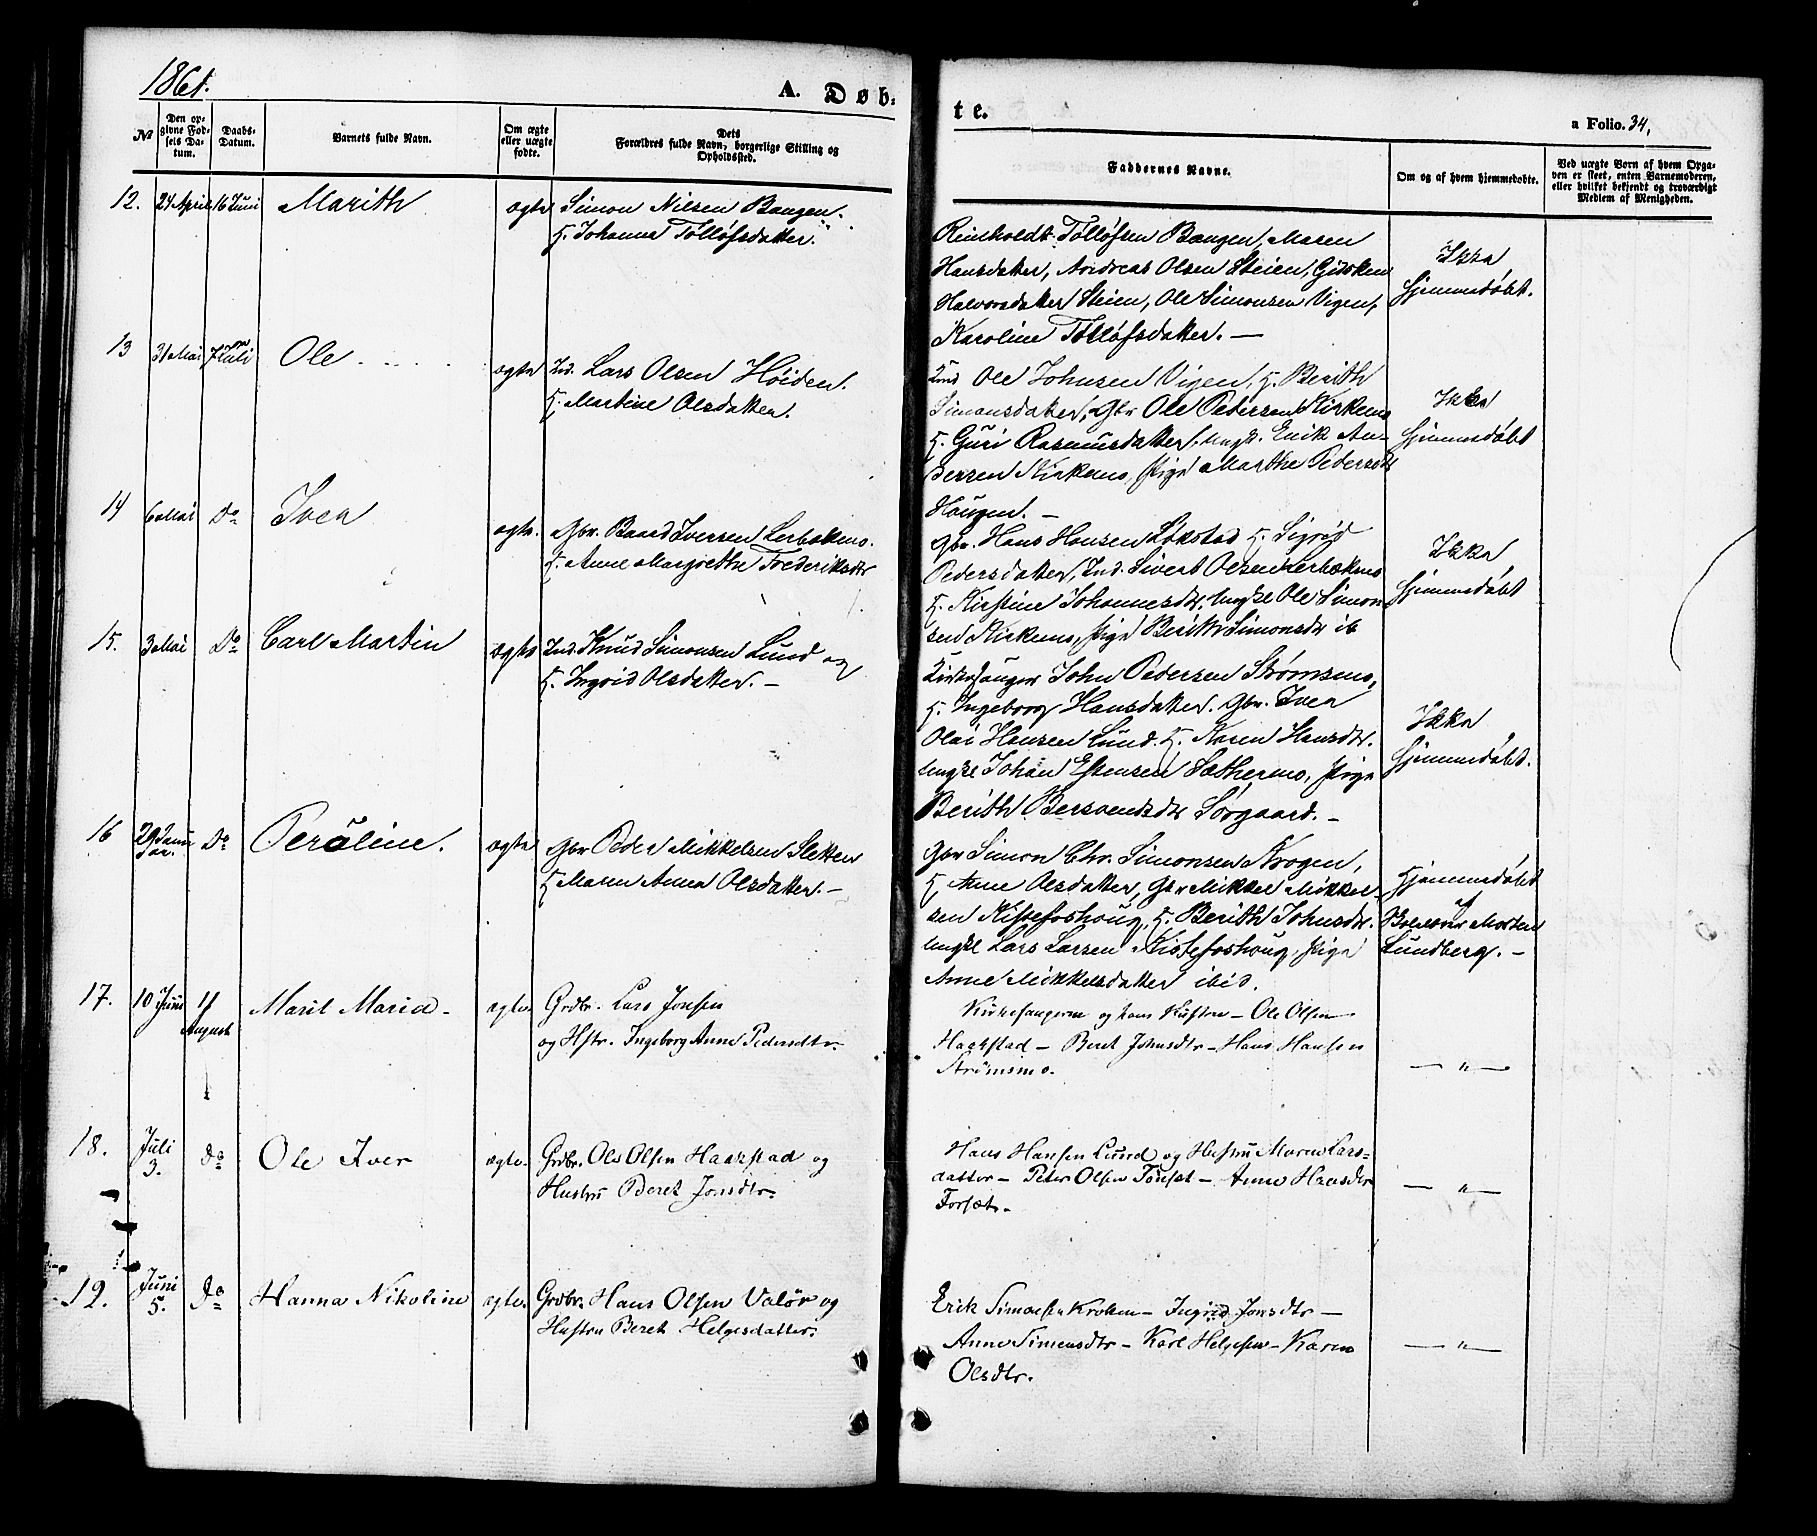 1861.
A. Døb-
te.
a Folio. 34,
No
Den op-
givne Fød-
sels Da-
tum.
Daabs-
Datum.
Barnets fulde Navn.
Om ægte
eller uægte
fødte.
Dets
Forældres fulde Navn, borgerlige Stilling og
Opholdssted.
Faddernes Navne.
Om og af hvem hjemmedøbte.
Ved uægte Børn af hvem Opga-
ven er skeet, enten Barnemoderen,
eller hvilket bekjendt og troværdigt
Medlem af Menigheden.
12. 24 April 16 Juni Marith ægte Simon Nilsen Baugen.
H. Johanna Tolløfsdatter.
Reinholdt Tolløfsen Baugen, Maren
Hansdatter, Andreas Olsen Steien, Gidsken
Halvorsdatter Steien, Ole Simonsen Vigen,
Karoline Tolløfsdatter. —
Ikke
hjemmedøbt.
13 31 Mai 7 Juli Ole ægte Ind. Lars Olsen Høiden.
H. Martine Olsdatter.
Ind Ole Johnsen Vigen, H. Berith
Simonsdatter, Gbr Ole Pedersen Kirkemo
H. Guri Rasmusdatter, Ungk. Erik An-
dersen Kirkemo, Pige Marthe Pedersdr
Haugen. —
Ikke
hjemmedøbt
14 6 Mai Do Iver ægte. Gbr. Baard Iversen Lerbekmo.
H. Anne Margrethe Frederiksdr
Gbr. Hans Hansen Løkstad H. Sigrid
Pedersdatter, Ind. Sivert Olsen Lerbækmo
H. Kirstine Johannesdr, Ungkl Ole Simon-
sen Kirkemo, Pige Berith Simonsdr ib
Ikke
hjemmedøbt
15. 3 Mai Do Carl Martin ægte Ind. Knud Simonsen Lund og
H. Ingrid Olsdatter. —
Kirkesanger John Pedersen Strømsmo,
H. Ingeborg Hansdatter. Gbr. Iver
Olai Hansen Lund. H. Karen Hansdr.
Ungkl Johan Estensen Sæthermo, Pige
Berith Bersvendsdr Sørgaard. —
Ikke
hjemmedøbt.
16 29 Janu
ar. Do Peroline. ægte Gbr Peder Mikkelsen Sletten
H. Maren Anna Olsdatter. —
Gbr Simon Chr. Simonsen Krogen,
H. Anne Olsdatter, Gbr Mikkel Mikkel-
sen Kistefoshoug, H. Berith Johnsdr.
Ungkl Lars Larsen Kistefoshoug, Pige
Anne Mikkelsdatter ibid.
Hjemmedøbt
af
Morten
Lundberg. —
17. 10 Juni 11
August Marit Maria — ægte. Grdbr. Lars Jonsen
og Hstr. Ingeborg Anne Pedersdtr.
Kirkesangeren og hans Hustru — Ole Olsen
Haakstad — Beret Johnsdtr — Hans Hansen
Strømsmo.
— " —
18. Juli
3. Do Ole Iver ægte. Grdbr. Ole Olsen Haakstad og
Hustru Beret Jonsdtr.
Hans Hansen Lund og Hustru Maren Lars-
datter — Peter Olsen Tønset — Anne Hansdtr
Forset.
— " —
19. Juni
5. Do Hanna Nikoline ægte. Grdbr. Hans Olsen Valør og
Hustru Beret Helgesdatter.
Erik Simonsen Kroken — Ingrid Jonsdtr —
Anne Simensdtr — Karl Helgesen — Karen
Olsdtr.
— " —